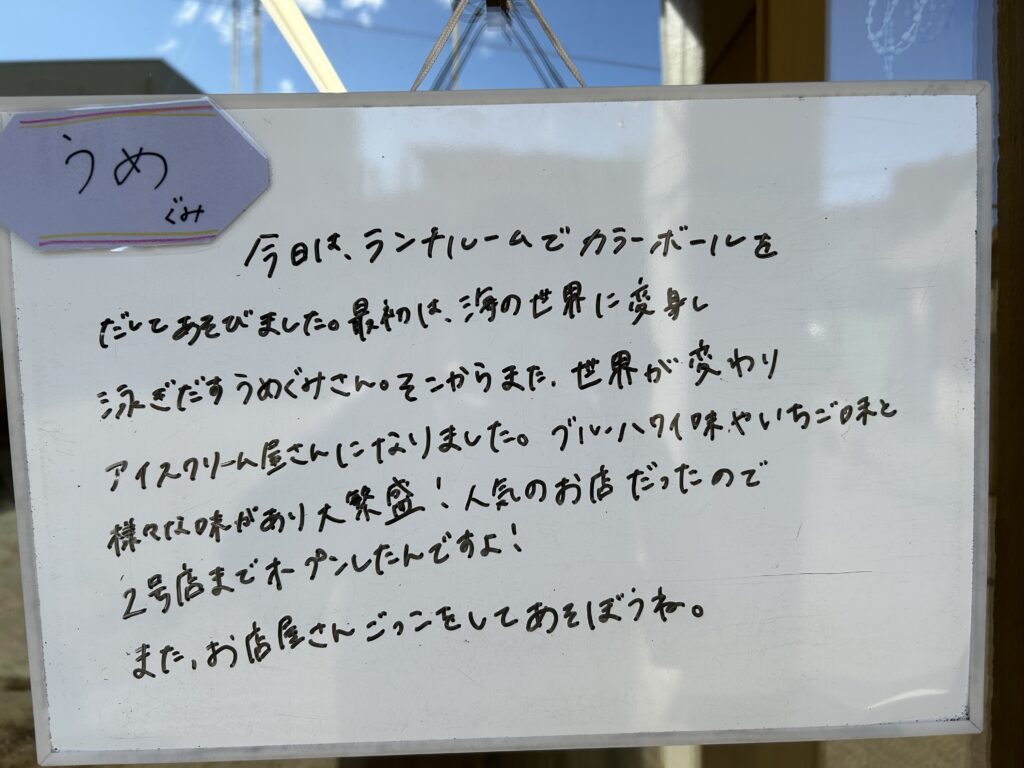 うめ
ぐみ
今日は、ランチルームでカラーボールを
だしてあそびました。最初は、海の世界に変身し
泳ぎだすうめぐみさん。そこからまた、世界が変わり
アイスクリーム屋さんになりました。ブルーハワイ味やいちご味と
様々な味があり大繁盛！人気のお店だったので
2号店までオープンしたんですよ！
また、お店屋さんごっこをしてあそぼうね。